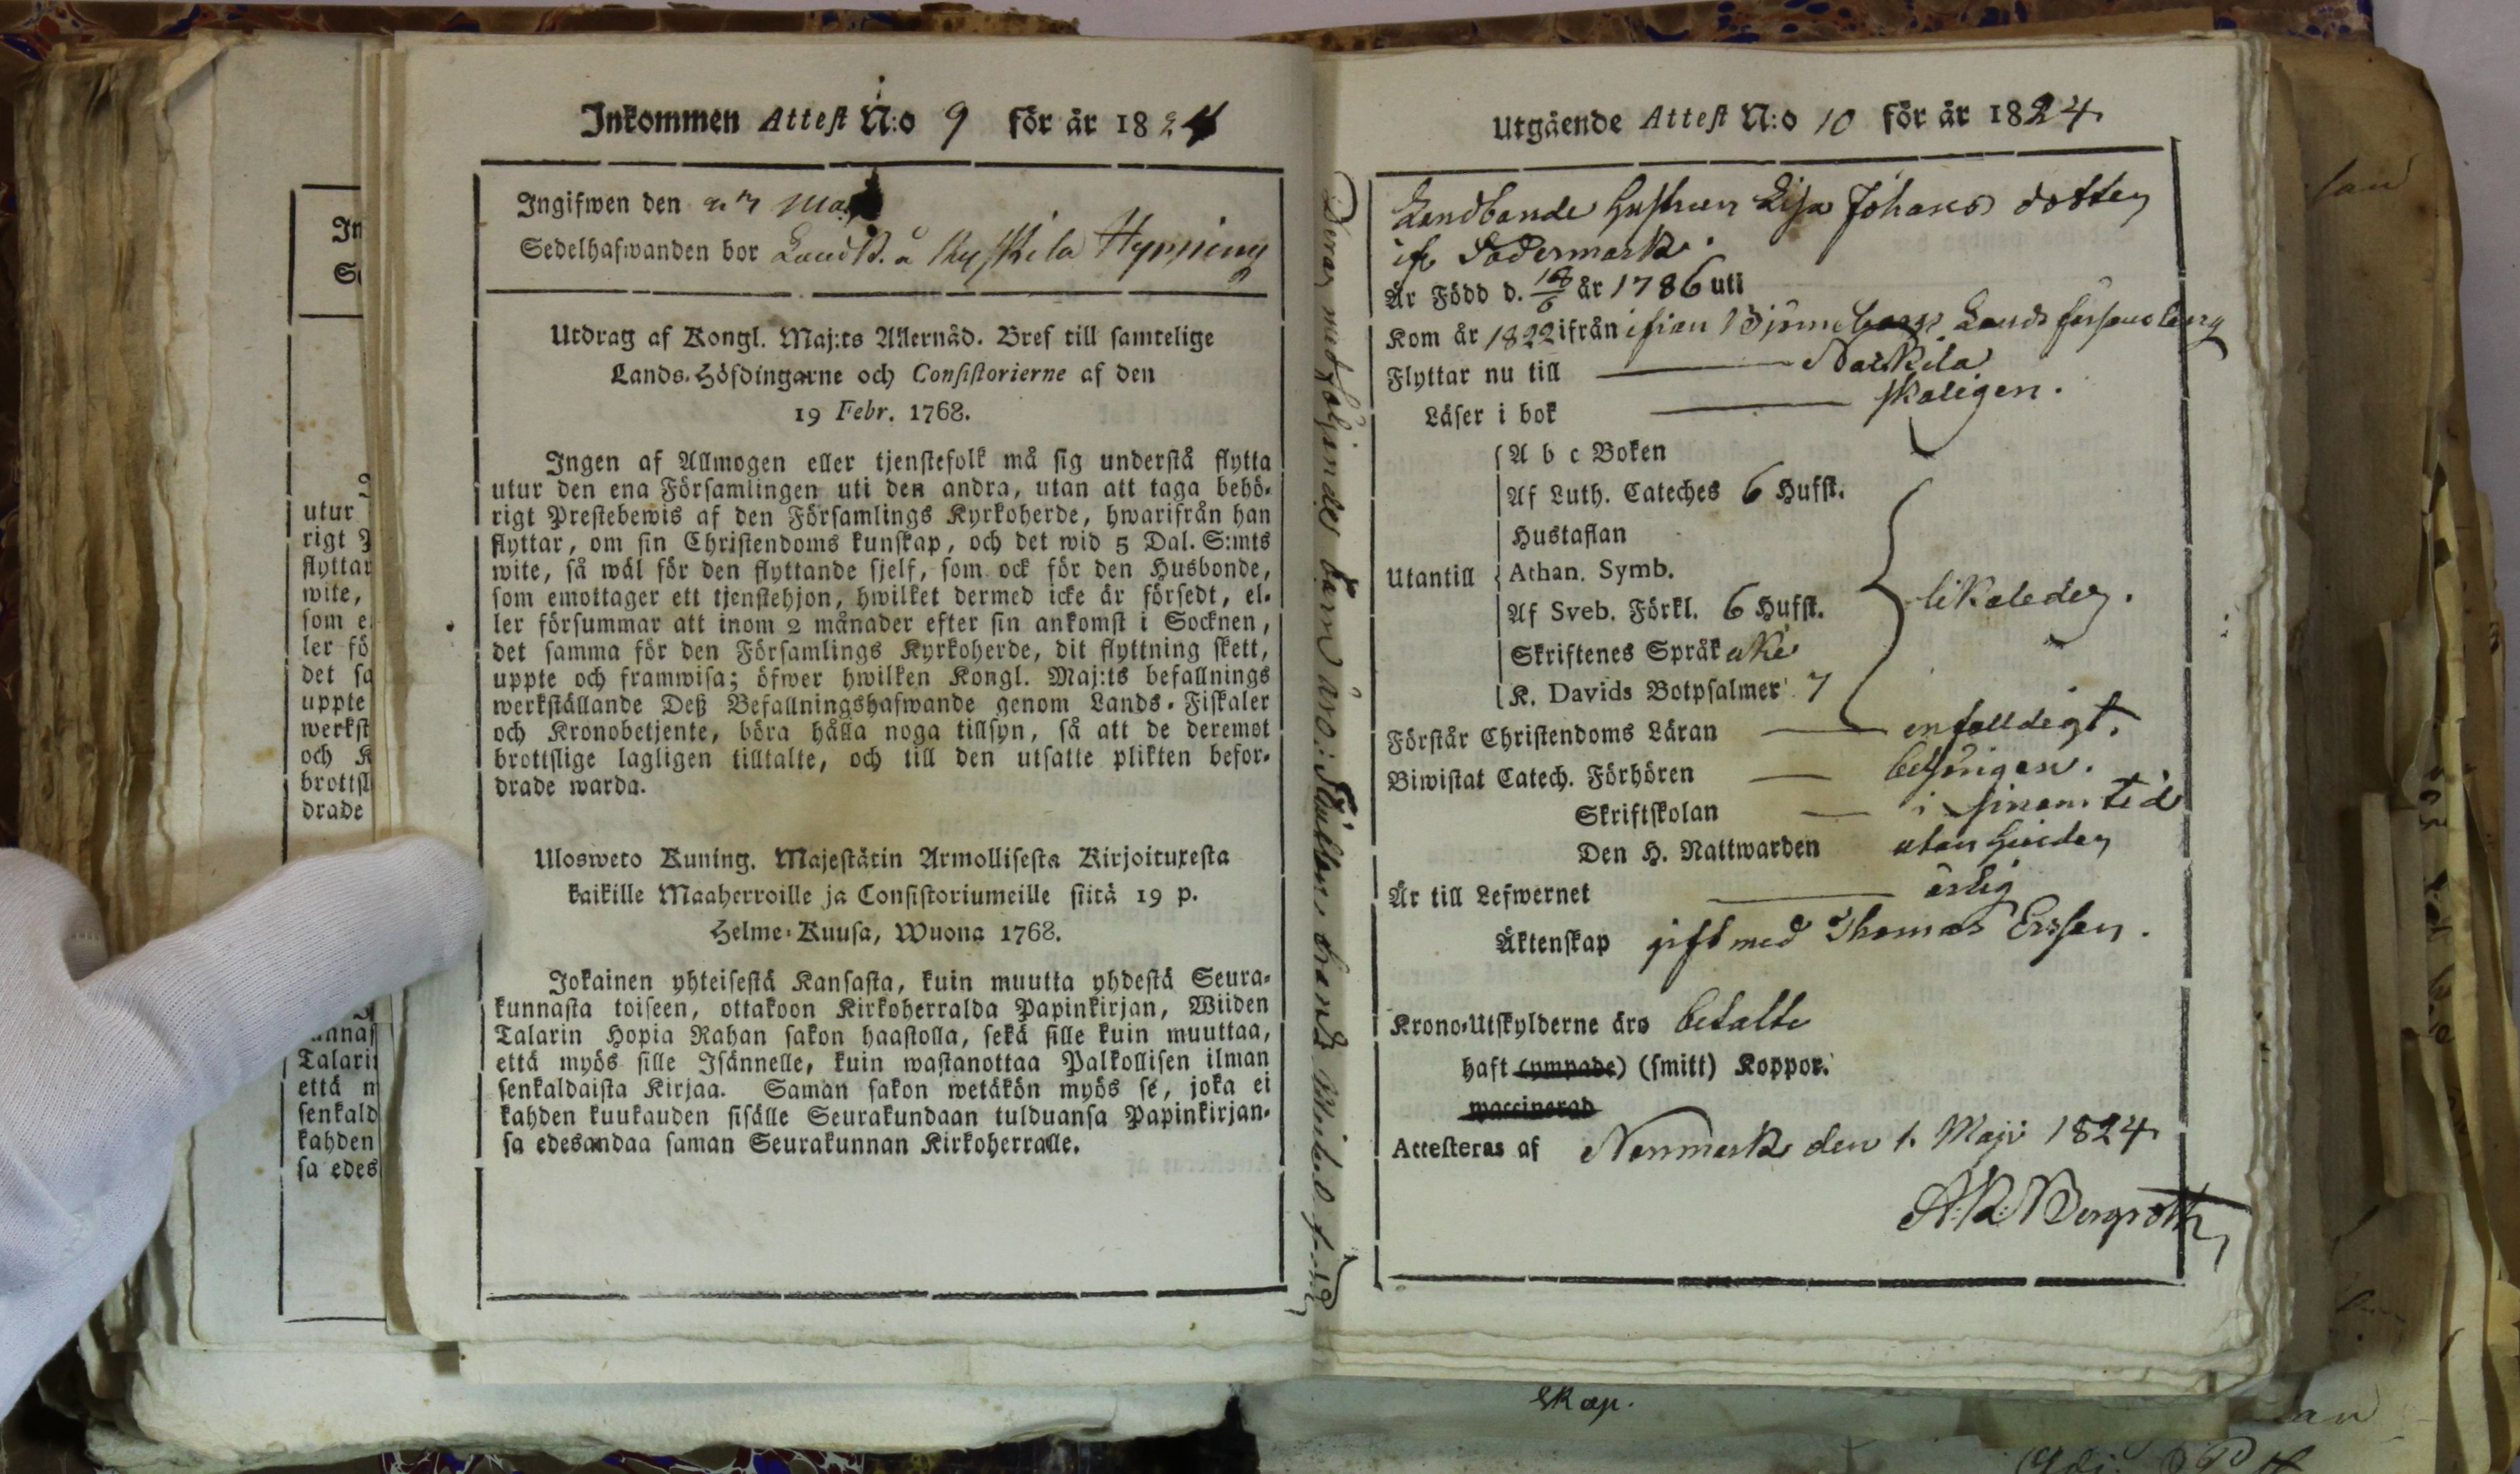 Inkommen Attest N:o 9 för år 1824
Ingifwen den
Sedelhafwanden bor
Utdrag af Kongl. Maj:ts Allernåd. Bref till samtelige
Lands-Höfdingarne och Consistorierne af den
19 Febr. 1768.
Ingen af Allmogen eller tjenstefolk må sig understå flytta
utur den ena Församlingen uti den andra, utan att taga behö-
rigt Prestebewis af den Församlings Kyrkoherde, hwarifrån han
flyttar, om sin Christendoms kunskap, och det wid 5 Dal. S:mts
wite, så wäl för den flyttande sjelf, som ock för den Husbonde,
som emottager ett tjenstehjon, hwilket dermed icke är försedt, el-
ler försummar att inom 2 månader efter sin ankomst i Socknen,
det samma för den Församlings Kyrkoherde, dit flyttning skett,
uppte och framwisa; öfwer hwilken Kongl. Maj:ts befallnings
werkställande Deß Befallningshafwande genom Lands-Fiskaler
och Kronobetjente, böra hålla noga tillsyn, så att de deremot
brottslige lagligen tilltalte, och till den utsatte plikten befor-
drade warda.
Ulosweto Kuning. Majestätin Armollisesta Kirjoituxesta
kaikille Maaherroille ja Consistoriumeille siitä 19 p.
Helme-Kuusa, Wuona 1768.
Jokainen yhteisestä Kansasta, kuin muutta yhdestä Seura-
kunnasta toiseen, ottakoon Kirkoherralda Papinkirjan, Wiiden
Talarin Hopia Rahan sakon haastolla, sekä sille kuin muuttaa,
että myös sille Isännelle, kuin wastanottaa Palkollisen ilman
senkaldaista Kirjaa. Saman sakon wetäkön myös se, joka ei
kahden kuukauden sisälle Seurakundaan tulduansa Papinkirjan-
sa edesandaa saman Seurakunnan Kirkoherralle.
Utgående Attest N:o 10 för år 1824
Landbonde Hustrun Lisa Johans dotter
Södermark.
Är Född d. år 1786 uti
Kom år 1822 ifrån Björneborgs Lands församling
Flyttar nu till Nackila
Läser i bok skäligen.
A b c Boken
Af Luth. Cateches 6 Hufst.
Hustaflan
Utantill Athan. Symb. likaledes.
Af Sveb. Förkl. 6 Hufst.
Skriftenes Språk
K. Davids Botpsalmer 7
Förstår Christendoms Läran enfalldigt.
Biwistat Catech. Förhören behörigen.
Skriftskolan i sinom tid
Den H. Nattwarden utan hinder
Är till Lefwernet ärlig
Äktenskap gift med Thomas Ersson.
Krono-Utskylderne äro betalte
haft (ympade) (smitt) Koppor.
waccinerad
Attesteras af Norrmark den 1. Maji 1824
Bergroth
skap.